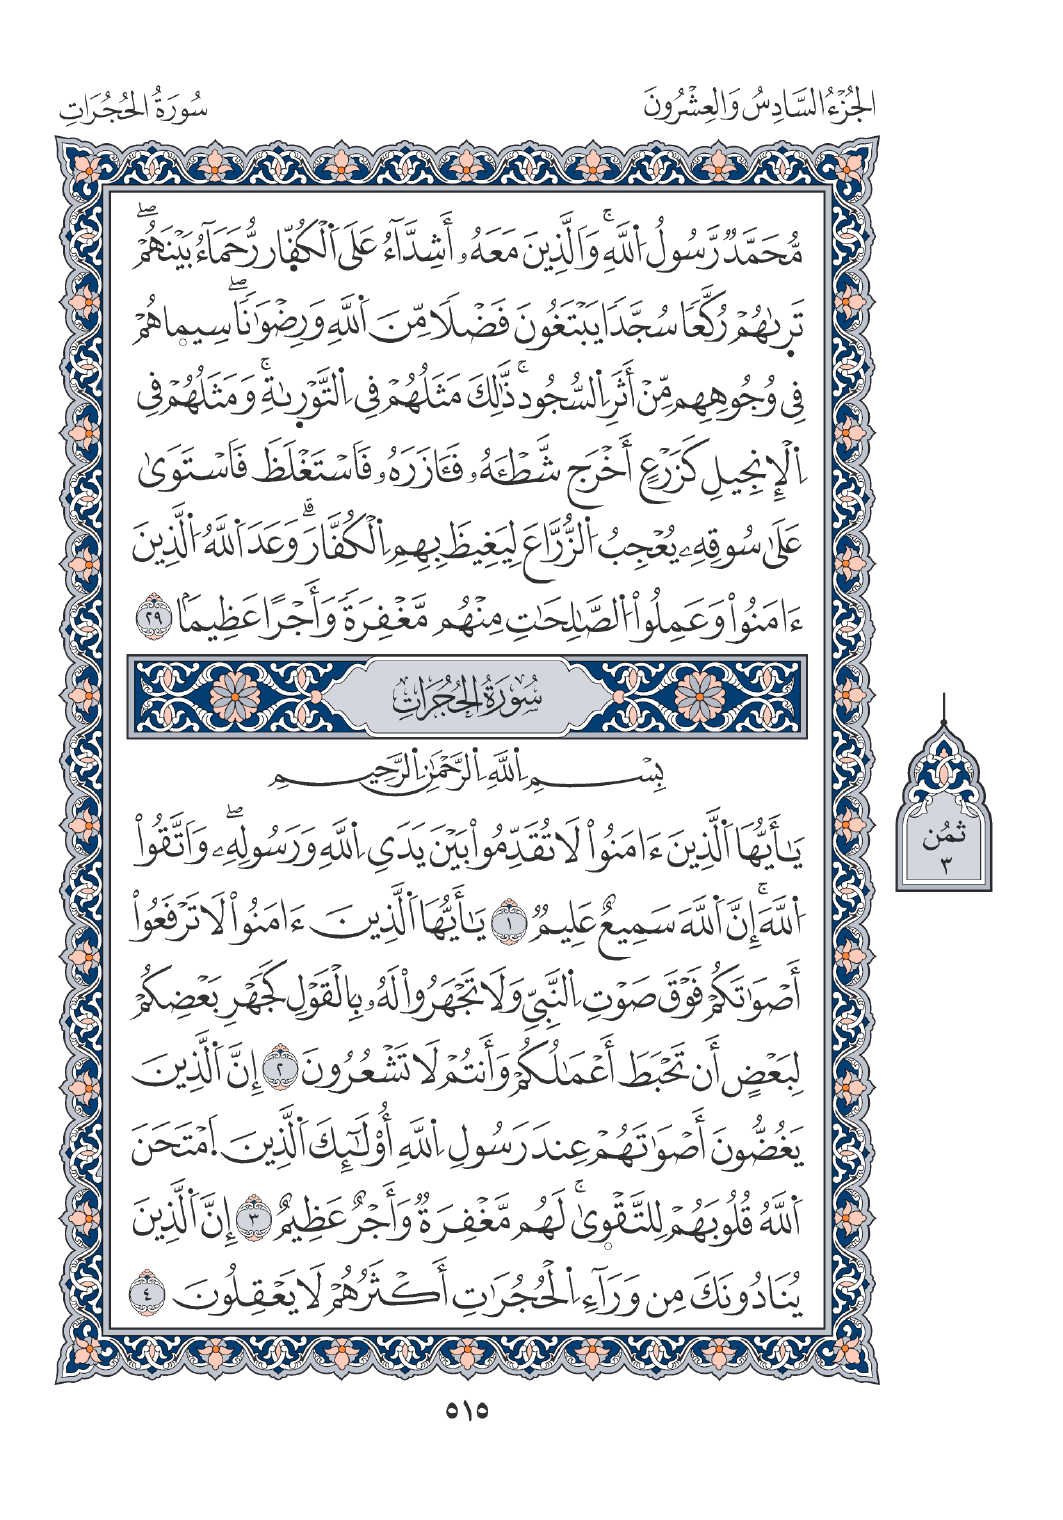 الجُزْءُ السَّادِسُ وَالعِشْرُونَ
سُورَةُ الحُجُرَاتِ
مُّحَمَّدٞ رَّسُولُ اُ۬للَّهِۚ وَالَّذِينَ مَعَهُۥٓ أَشِدَّآءُ عَلَى اَ۬لْكُفّ۪ارِ رُحَمَآءُ بَيْنَهُمْۖ
تَر۪ىٰهُمْ رُكَّعٗا سُجَّدٗا يَبْتَغُونَ فَضْلٗا مِّنَ اَ۬للَّهِ وَرِضْوَٰنٗاۖ سِيم۪اهُمْ
فِي وُجُوهِهِم مِّنْ أَثَرِ اِ۬لسُّجُودِۚ ذَّٰلِكَ مَثَلُهُمْ فِي اِ۬لتَّوْر۪ىٰةِۚ وَمَثَلُهُمْ فِي
اِ۬لْإِنجِيلِ كَزَرْعٍ أَخْرَج شَّطْـَٔهُۥ فَـَٔازَرَهُۥ فَاسْتَغْلَظَ فَاسْتَوَىٰ
عَلَىٰ سُوقِهِۦ يُعْجِبُ اُ۬لزُّرَّاعَ لِيَغِيظَ بِهِمِ اِ۬لْكُفَّارَۗ وَعَدَ اَ۬للَّهُ اُ۬لَّذِينَ
ءَامَنُواْ وَعَمِلُواْ اُ۬لصَّٰلِحَٰتِ مِنْهُم مَّغْفِرَةٗ وَأَجْرًا عَظِيمَۢا ٢٩
سُورَةُ الحُجُرَاتِ
بِسْمِ اِ۬للَّهِ اِ۬لرَّحْمَٰنِ اِ۬لرَّحِيمِ
يَٰٓأَيُّهَا اَ۬لَّذِينَ ءَامَنُواْ لَا تُقَدِّمُواْ بَيْنَ يَدَيِ اِ۬للَّهِ وَرَسُولِهِۦۖ وَاتَّقُواْ
اُ۬للَّهَۚ إِنَّ اَ۬للَّهَ سَمِيعٌ عَلِيمٞ ١ يَٰٓأَيُّهَا اَ۬لَّذِينَ ءَامَنُواْ لَا تَرْفَعُواْ
أَصْوَٰتَكُمْ فَوْقَ صَوْتِ اِ۬لنَّبِيِّ وَلَا تَجْهَرُواْ لَهُۥ بِالْقَوْلِ كَجَهْرِ بَعْضِكُمْ
لِبَعْضٍ أَن تَحْبَطَ أَعْمَٰلُكُمْ وَأَنتُمْ لَا تَشْعُرُونَ ٢ إِنَّ اَ۬لَّذِينَ
يَغُضُّونَ أَصْوَٰتَهُمْ عِندَ رَسُولِ اِ۬للَّهِ أُوْلَٰٓئِكَ اَ۬لَّذِينَ اَ۪مْتَحَنَ
اَ۬للَّهُ قُلُوبَهُمْ لِلتَّقْو۪ىٰۚ لَهُم مَّغْفِرَةٞ وَأَجْرٌ عَظِيمٌ ٣ إِنَّ اَ۬لَّذِينَ
يُنَادُونَكَ مِن وَرَآءِ اِ۬لْحُجُرَٰتِ أَكْثَرُهُمْ لَا يَعْقِلُونَ ٤
ثمُن
٣
٥١٥